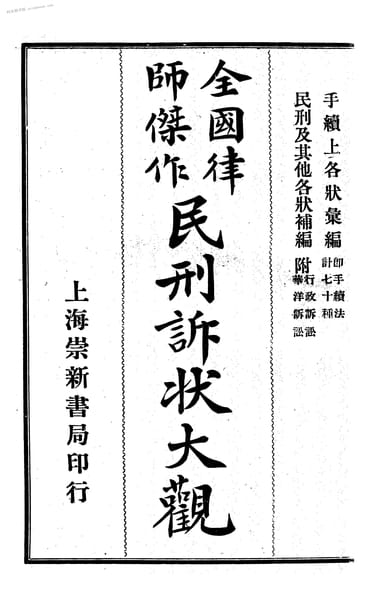 手續上各狀彙編
卽手續法
計七十種
民刑及其他各狀補編
附
行政訴訟
華洋訴訟
全國律
師傑作
民刑訴狀大觀
上海崇新書局印行